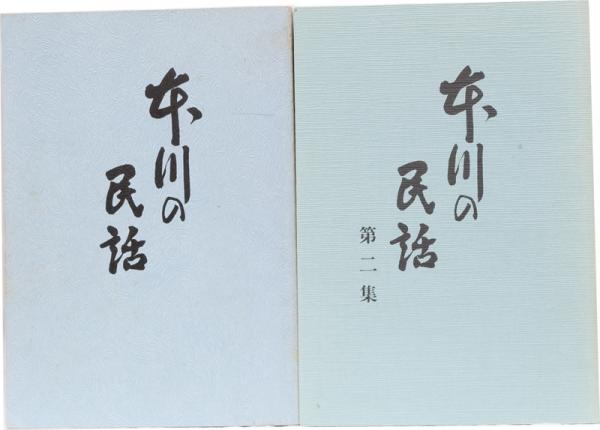 本川の
民話
本川の
民話
第二集